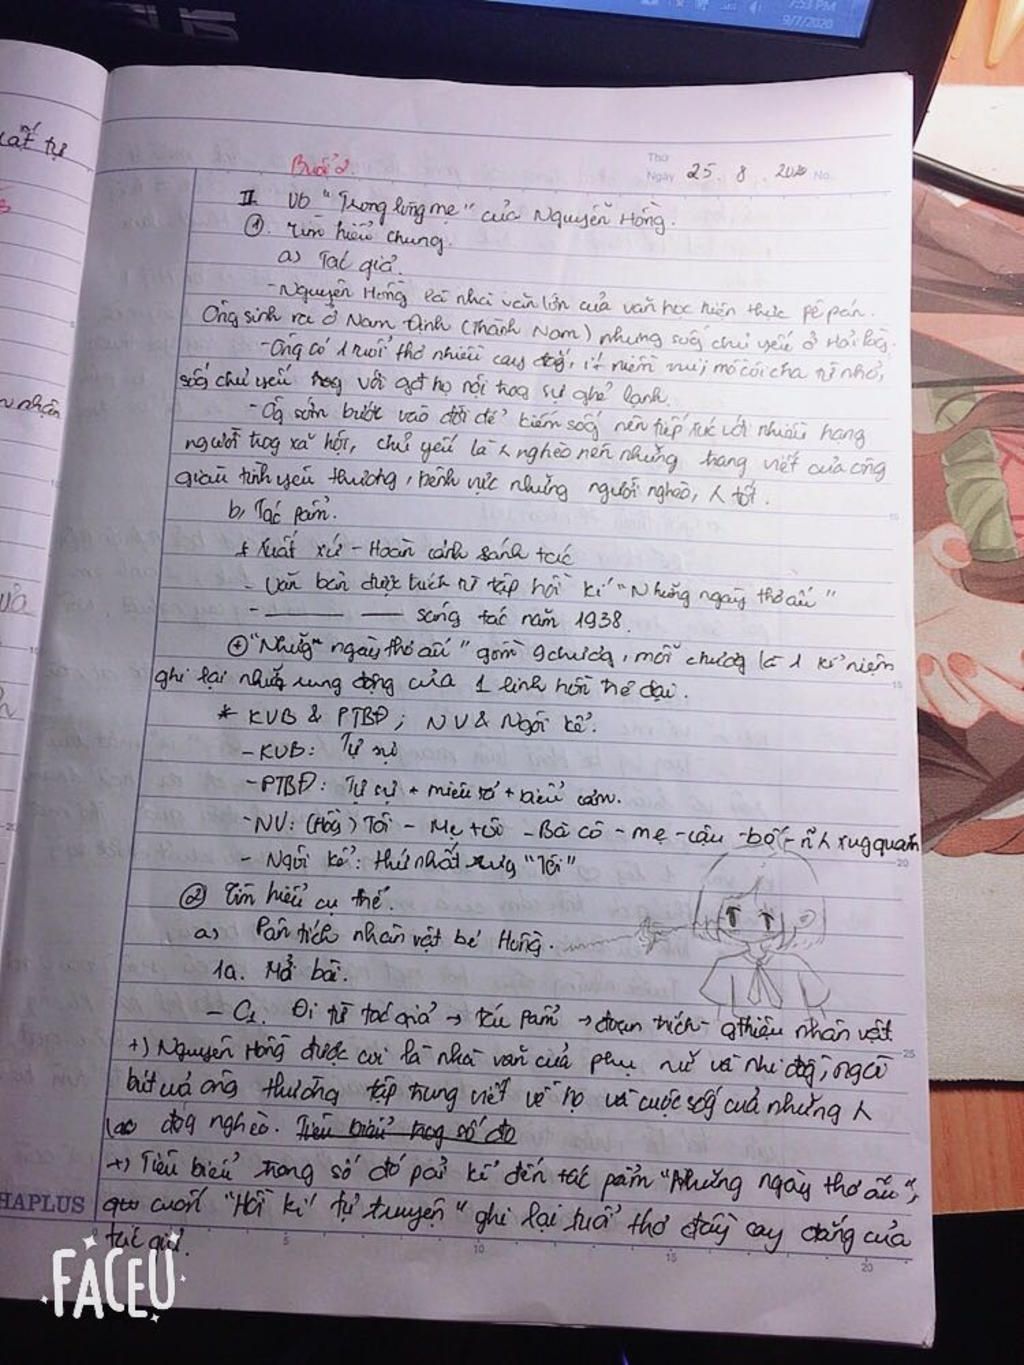 7:53 PM
9/7/2020
Buổi 2.
Thứ
Ngày 25 . 8 . 2020 No.
II. Vb "Trong lòng mẹ" của Nguyên Hồng.
①. Tìm hiểu chung.
a) Tác giả.
- Nguyên Hồng là nhà văn lớn của văn học hiện thực pê pán.
Ông sinh ra ở Nam Định (Thành Nam) nhưng sốg chủ yếu ở Hải Fòg.
- Ông có 1 tuổi thơ nhiều cay đắg, ít niềm vui, mồ côi cha từ nhỏ,
sốg chủ yếu với họ nội trog sự ghẻ lạnh.
- Ôg sớm bước vào đời để kiếm sốg nên tiếp xúc với nhiều hạng
người trog xã hội, chủ yếu là λ nghèo nên những trang viết của ông
giàu tình yêu thương, bênh vực những người nghèo, λ tốt.
b, Tác pẩm.
* Xuất xứ - Hoàn cảnh sánh tác
- Văn bản được trích từ tập hồi kí "Những ngày thơ ấu"
- ——— —— sáng tác năm 1938.
⊕ "Nhữg ngày thơ ấu" gồm 9 chươg, mỗi chươg là 1 kỉ niệm
ghi lại nhữg rung độg của 1 linh hồn thơ dại.
* KVB & PTBĐ; NV & Ngôi kể:
- KVB: Tự sự
- PTBĐ: Tự sự + miêu tả + biểu cảm.
- NV: (Hồg) Tôi - Mẹ tôi - Bà cô - mẹ - cậu - bố - ~λ xug quanh
- Ngôi kể: thứ nhất xưg "Tôi"
② Tìm hiểu cụ thể.
a) Pân tích nhân vật bé Hồng.
1a. Mở bài.
- C1. Đi từ tác giả → tác pẩm → đoạn trích - gthiệu nhân vật
+) Nguyên Hồng được coi là nhà văn của phụ nữ và nhi đồg, ngòi
bút của ông thường tập trung viết về họ và cuộc sốg của những λ
lao độg nghèo. Tiêu biểu trog số đó
+) Tiêu biểu trong số đó pải kể đến tác pẩm "Những ngày thơ ấu",
cuốn "Hồi kí tự truyện" ghi lại tuổi thơ đầy cay đắng của
tác giả.
HAPLUS
5
10
15
20
25
5 10 15 20
FACEU